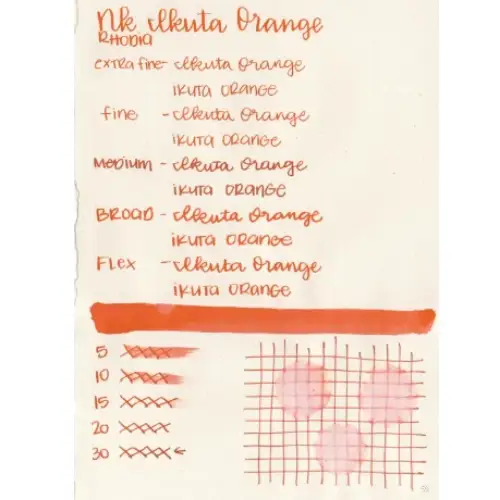 Nk Ikuta Orange
RHODIA
extra fine - Ikuta Orange
IKUTA ORANGE
fine - Ikuta Orange
IKUTA ORANGE
MEDIUM - Ikuta Orange
IKUTA ORANGE
BROAD - Ikuta Orange
IKUTA ORANGE
FLEX - Ikuta Orange
IKUTA ORANGE
5 XXXX
10 XXXX
15 XXXX
20 XXXX
30 XXXX ←